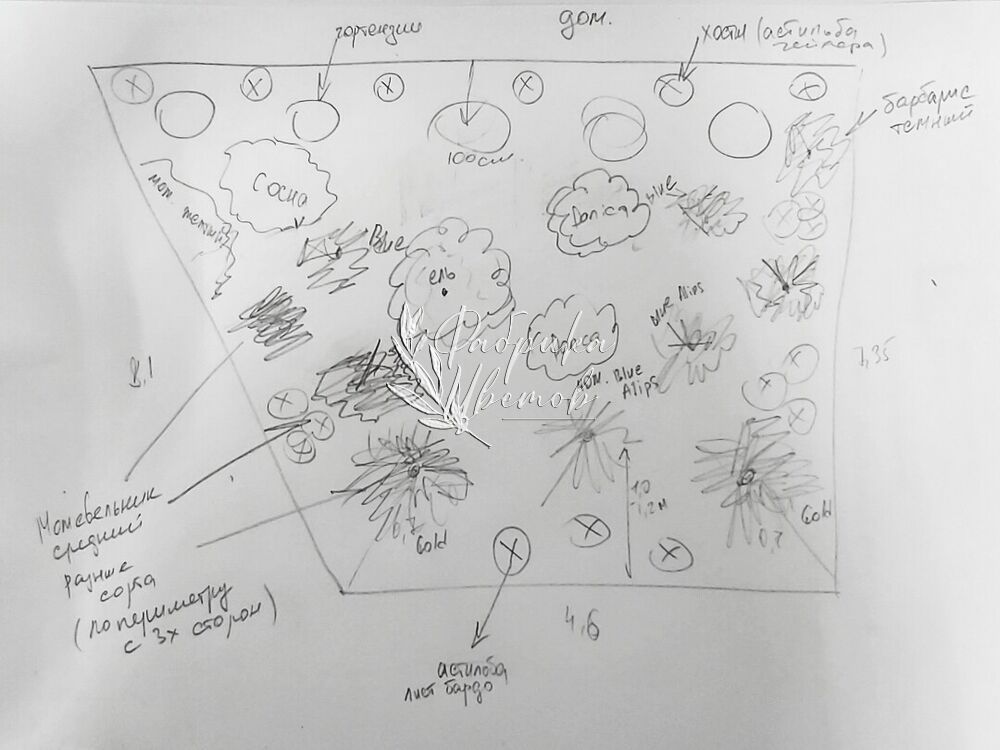 дом.
гортензии
хосты (астильба
гейхера)
барбарис
темный
100см.
Сосна
мож.
Blue
ель
Danica
blue
Danica
blue Alips
мож. Blue
Alips
Фабрика
Цветов
8,1
7,35
1,0
-1,2м
0,7
Gold
Gold
0,7
Можевельник
средний
разные
сорта
(по периметру
с 3х сторон)
4,6
астильба
лист бардо